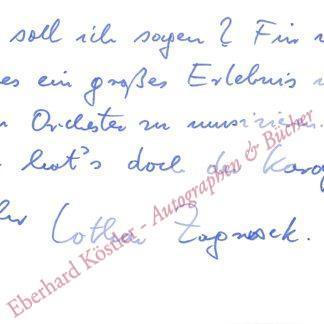 soll ich sagen? Für
es ein großes Erlebnis
Orchester zu musizieren.
hat's doch der
Lothar Zagrosek.
Eberhard Köstler - Autographen & Bücher